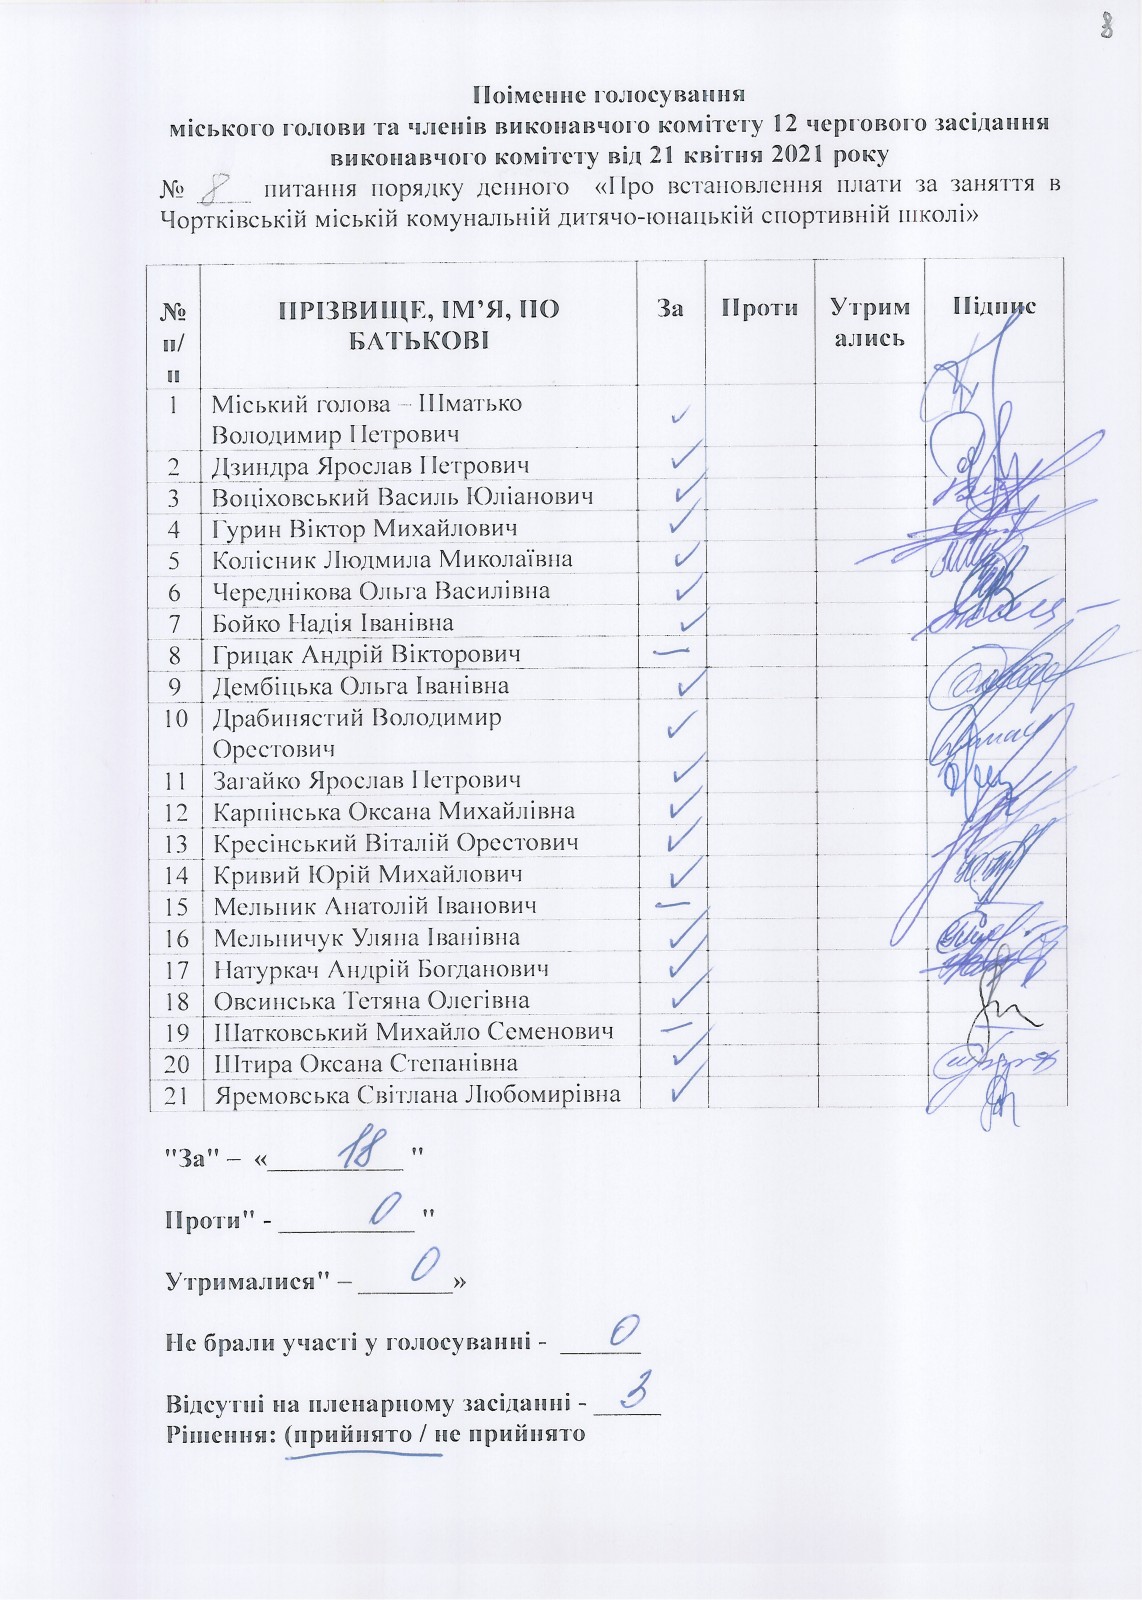 8
Поіменне голосування
міського голови та членів виконавчого комітету 12 чергового засідання
виконавчого комітету від 21 квітня 2021 року
№ 8 питання порядку денного «Про встановлення плати за заняття в
Чортківській міській комунальній дитячо-юнацькій спортивній школі»
№ п/п ПРІЗВИЩЕ, ІМ’Я, ПО БАТЬКОВІ За Проти Утримались Підпис
1 Міський голова – Шматько
Володимир Петрович ✓
2 Дзиндра Ярослав Петрович ✓
3 Воціховський Василь Юліанович ✓
4 Гурин Віктор Михайлович ✓
5 Колісник Людмила Миколаївна ✓
6 Череднікова Ольга Василівна ✓
7 Бойко Надія Іванівна ✓
8 Грицак Андрій Вікторович –
9 Дембіцька Ольга Іванівна ✓
10 Драбинястий Володимир
Орестович ✓
11 Загайко Ярослав Петрович ✓
12 Карпінська Оксана Михайлівна ✓
13 Кресінський Віталій Орестович ✓
14 Кривий Юрій Михайлович ✓
15 Мельник Анатолій Іванович –
16 Мельничук Уляна Іванівна ✓
17 Натуркач Андрій Богданович ✓
18 Овсинська Тетяна Олегівна ✓
19 Шатковський Михайло Семенович –
20 Штира Оксана Степанівна ✓
21 Яремовська Світлана Любомирівна ✓
"За" – « 18 "
Проти" - 0 "
Утрималися" – 0 »
Не брали участі у голосуванні - 0
Відсутні на пленарному засіданні - 3
Рішення: (прийнято / не прийнято